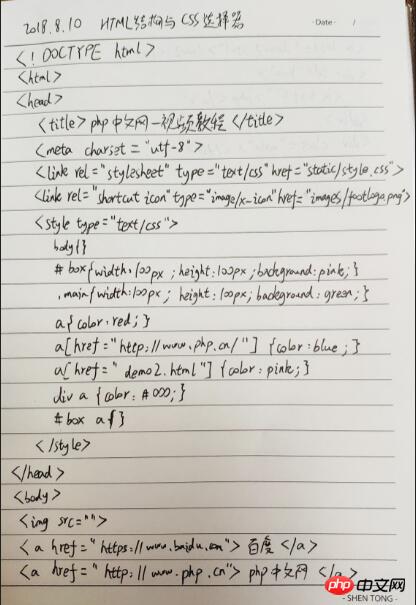 2018.8.10 HTML结构与CSS选择器
Date: /
<! DOCTYPE html>
<html>
<head>
<title>php中文网一视频教程</title>
<meta charset="utf-8">
<link rel="stylesheet" type="text/css" href="static/style.css">
<link rel="shortcut icon" type="image/x-icon" href="images/footlogo.png">
<style type="text/css">
body{}
#box{width:100px; height:100px; background:pink;}
.main{width:100px; height:100px; background:green;}
a{color:red;}
a[href="http://www.php.cn/"] {color:blue;}
a[href="demo2.html"] {color:pink;}
div a {color:#000;}
#box a{}
</style>
</head>
<body>
<img src="">
<a href="https://www.baidu.com">百度</a>
<a href="http://www.php.cn">php中文网</a>
php中文网
SHEN TONG